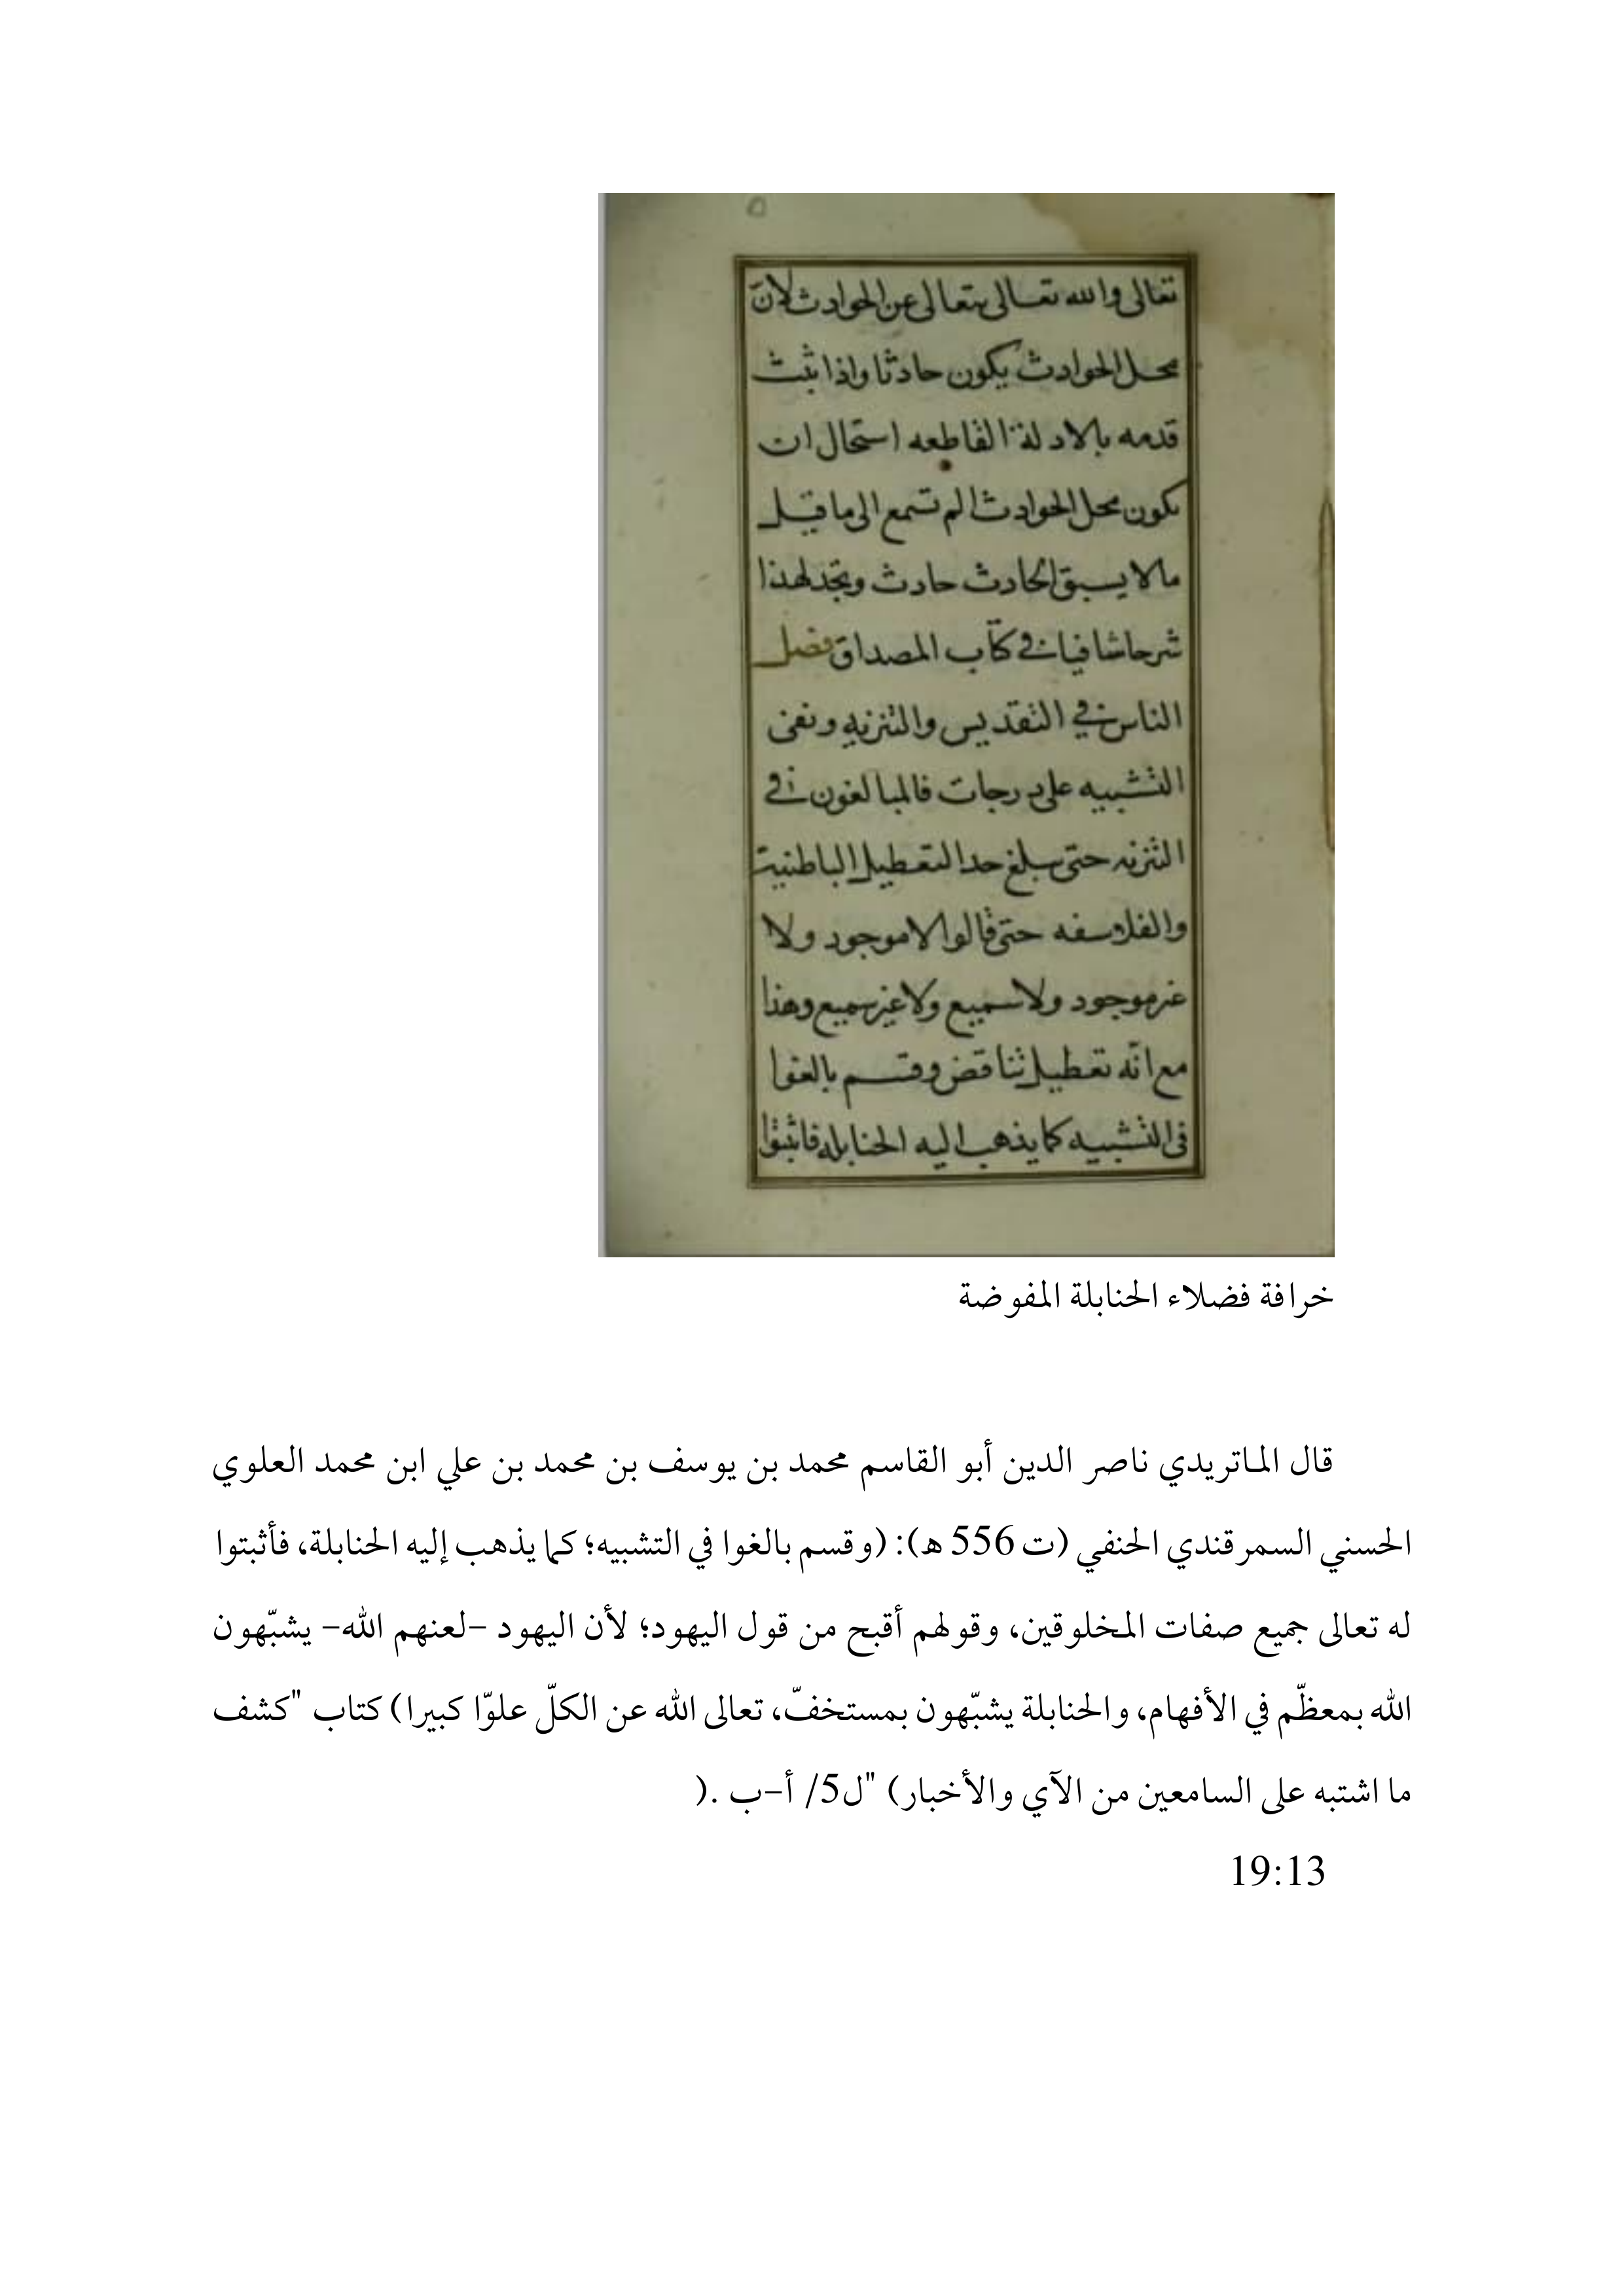 ٥
تعالى والله تعالى يتعالى عن الحوادث لان
محل الحوادث يكون حادثا واذا ثبت
قدمه بالادلة القاطعه استحال ان
يكون محل الحوادث الم تسمع الى ما قيل
مالا يسبق الحادث حادث وتجد لهذا
شرحا شافيا في كتاب المصداق فصل
الناس في التقديس والتنزيه ونفى
التشبيه على درجات فالمبالغون في
التنزيه حتى يبلغ حد التعطيل الباطنية
والفلاسفه حتى قالوا لا موجود ولا
غير موجود ولا سميع ولا غير سميع وهذا
مع انّه تعطيل تناقض وقسم بالغوا
في التشبيه كما يذهب اليه الحنابله فاثبتوا
خرافة فضلاء الحنابلة المفوضة
قال الماتريدي ناصر الدين أبو القاسم محمد بن يوسف بن محمد بن علي ابن محمد العلوي
الحسني السمرقندي الحنفي (ت 556 ه): (وقسم بالغوا في التشبيه؛ كما يذهب إليه الحنابلة، فأثبتوا
له تعالى جميع صفات المخلوقين، وقولهم أقبح من قول اليهود؛ لأن اليهود -لعنهم الله- يشبّهون
الله بمعظّم في الأفهام، والحنابلة يشبّهون بمستخفّ، تعالى الله عن الكلّ علوّا كبيرا) كتاب "كشف
ما اشتبه على السامعين من الآي والأخبار) "ل5/ أ-ب .(
19:13